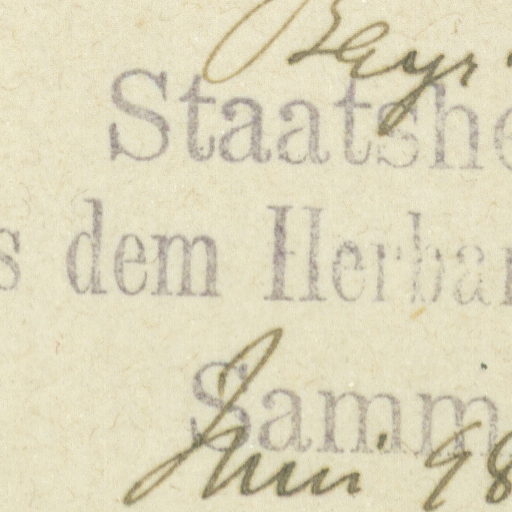 Bayr.
Staatshe
s dem Herbar
Samm
Juni 98